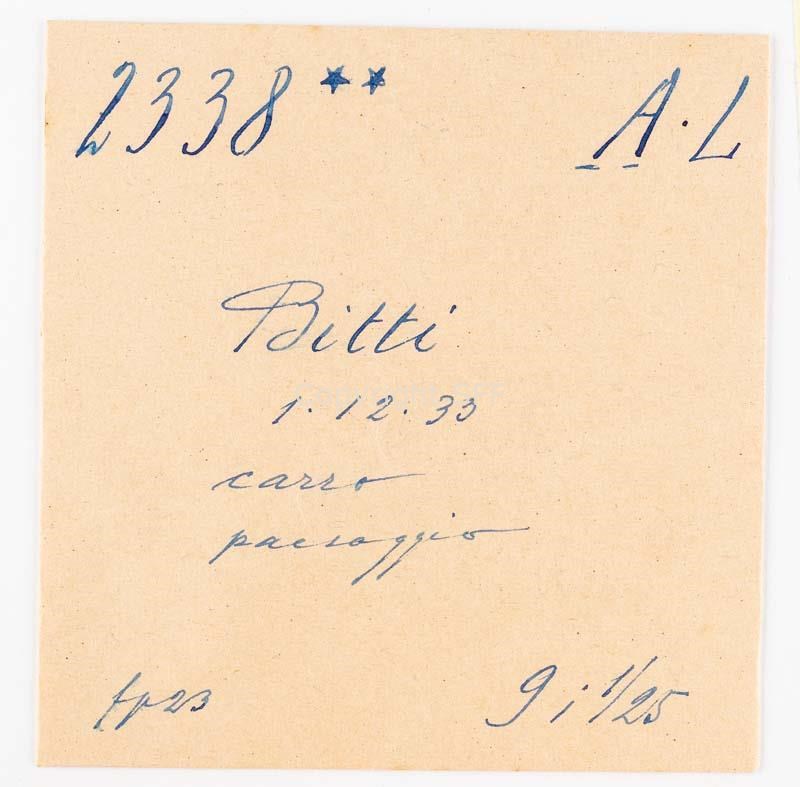 2338 ★★ A. L
Bitti
1. 12. 33
carro
paesaggio
fp 23 9 i 1/25